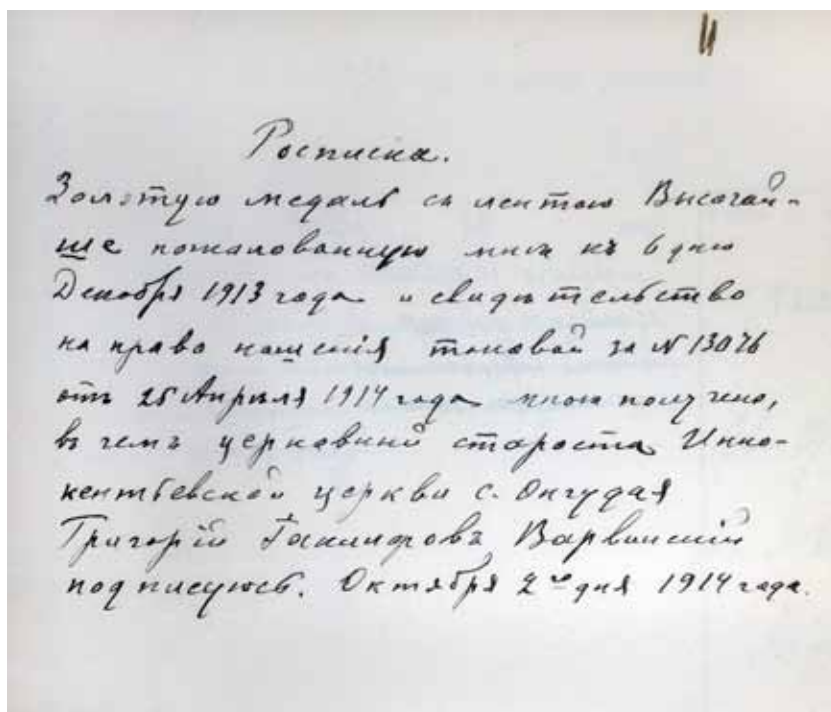 11
Росписка.
Золотую медаль съ лентою Высочай-
ше пожалованную мнѣ къ 6 дню
Декабря 1913 года и свидѣтельство
на право ношенія таковой за № 13076
отъ 25 Апрѣля 1914 года мною получено,
въ чемъ церковный староста Инно-
кентьевской церкви с. Онгудая
Григорій Варвинскій
подписуюсь. Октября 2го дня 1914 года.